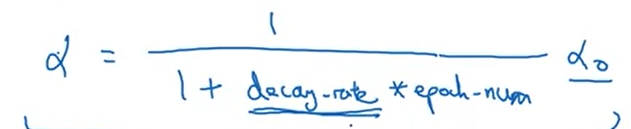 α = 1 / 1 + decay-rate * epoch-num α₀